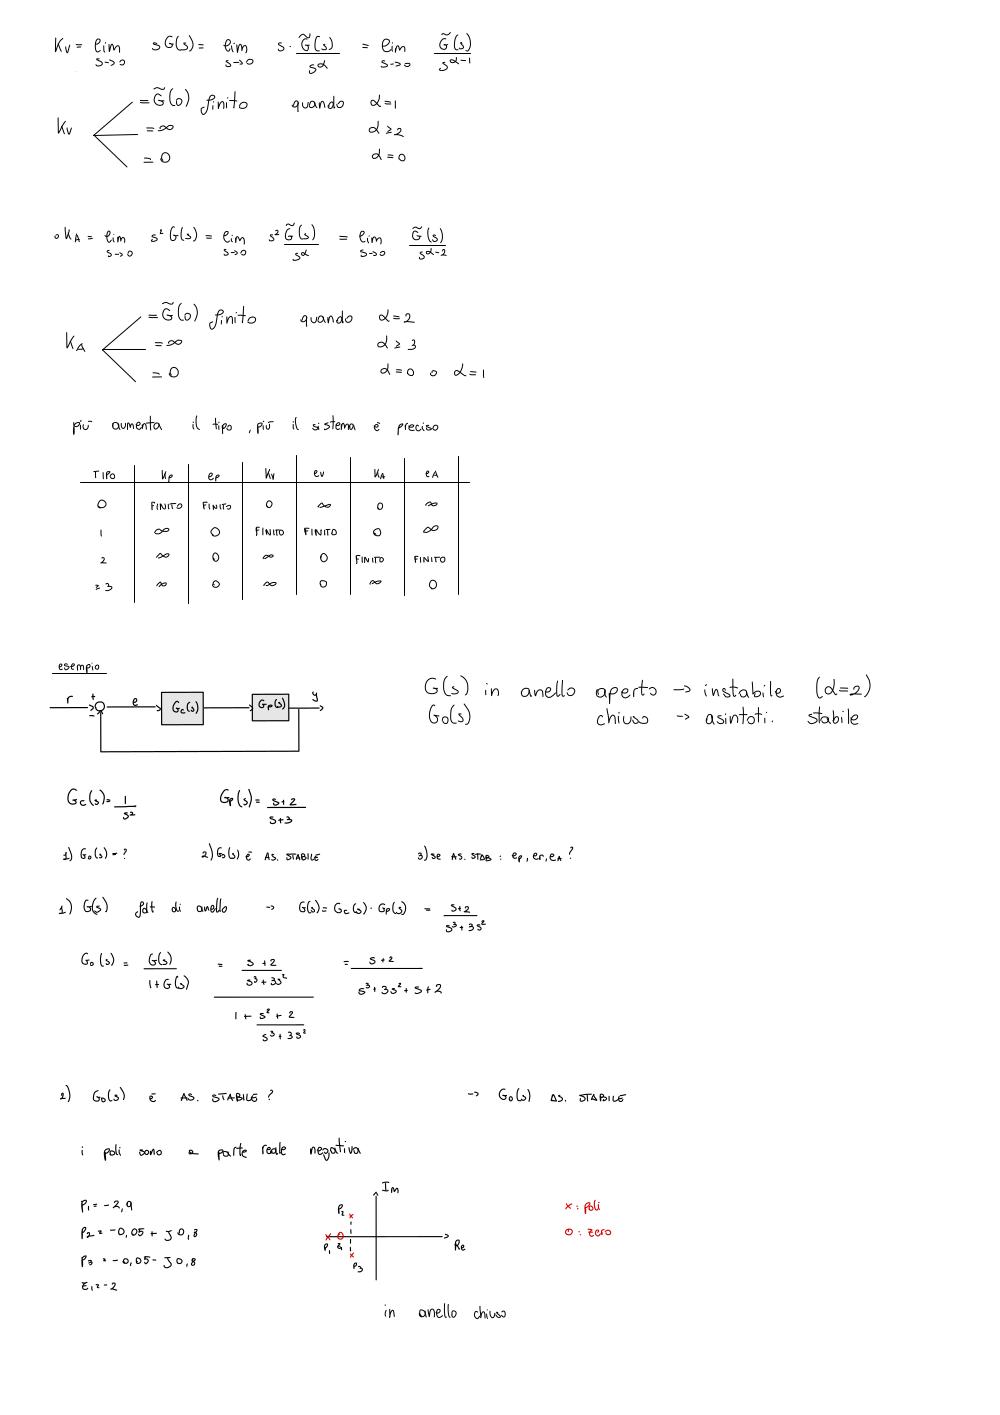 Kv = lim s→0 s G(s) = lim s→0 s · G̃(s)/s^α = lim s→0 G̃(s)/s^(α-1)
Kv = G̃(0) finito quando α=1
= ∞ α ≥ 2
= 0 α = 0
∘ KA = lim s→0 s² G(s) = lim s→0 s² G̃(s)/s^α = lim s→0 G̃(s)/s^(α-2)
KA = G̃(0) finito quando α=2
= ∞ α ≥ 3
= 0 α = 0 o α = 1
più aumenta il tipo, più il sistema è preciso
TIPO Kp ep Kv ev KA eA
0 FINITO FINITO 0 ∞ 0 ∞
1 ∞ 0 FINITO FINITO 0 ∞
2 ∞ 0 ∞ 0 FINITO FINITO
≥ 3 ∞ 0 ∞ 0 ∞ 0
esempio
r + - e Gc(s) Gp(s) y
G(s) in anello aperto → instabile (α=2)
G0(s) chiuso → asintoti. stabile
Gc(s) = 1/s² Gp(s) = (s+2)/(s+3)
1) G0(s) = ? 2) G0(s) è AS. STABILE 3) se AS. STAB : ep, er, eA ?
1) G(s) fdt di anello → G(s) = Gc(s) · Gp(s) = (s+2)/(s³+3s²)
G0(s) = G(s)/(1+G(s)) = ((s+2)/(s³+3s²))/(1 + (s²+2)/(s³+3s²)) = (s+2)/(s³+3s²+s+2)
2) G0(s) è AS. STABILE ? → G0(s) AS. STABILE
i poli sono a parte reale negativa
P1 = -2,9
P2 = -0,05 + J 0,8
P3 = -0,05 - J 0,8
Z1 = -2
Im
P2
P1 Z1 Re
P3
x : poli
o : zero
in anello chiuso